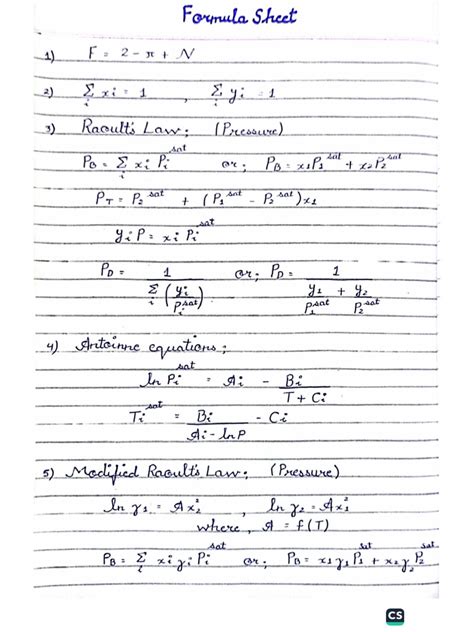 Formula Sheet
1) F = 2 - π + N
2) Σi xi = 1 , Σi yi = 1
3) Raoult's Law: (Pressure)
PB = Σi xi Pi^sat or; PB = x1P1^sat + x2P2^sat
PT = P2^sat + (P1^sat - P2^sat)x1
yiP = xi Pi^sat
PD = 1 / Σi (yi / Pi^sat) or; PD = 1 / (y1 / P1^sat + y2 / P2^sat)
4) Antoinne equations;
ln Pi^sat = Ai - Bi / (T + Ci)
Ti^sat = Bi / (Ai - lnP) - Ci
5) Modified Raoult's Law: (Pressure)
ln γ1 = Ax2^2 , ln γ2 = Ax1^2
where, A = f(T)
PB = Σi xi γi Pi^sat or; PB = x1 γ1 P1^sat + x2 γ2 P2^sat
CS